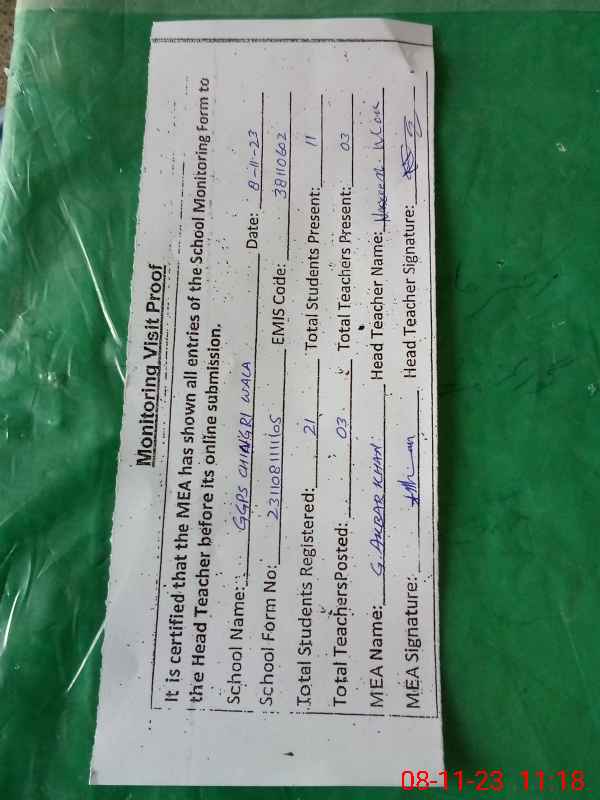 Monitoring Visit Proof
It is certified that the MEA has shown all entries of the School Monitoring Form to
the Head Teacher before its online submission.
School Name: GGPS CHINGRI WALA Date: 8-11-23
School Form No: 231108111105 EMIS Code: 38110602
Total Students Registered: 21 Total Students Present: 11
Total TeachersPosted: 03 Total Teachers Present: 03
MEA Name: G. AKBAR KHAN Head Teacher Name:
MEA Signature: Head Teacher Signature:
08-11-23 11:18